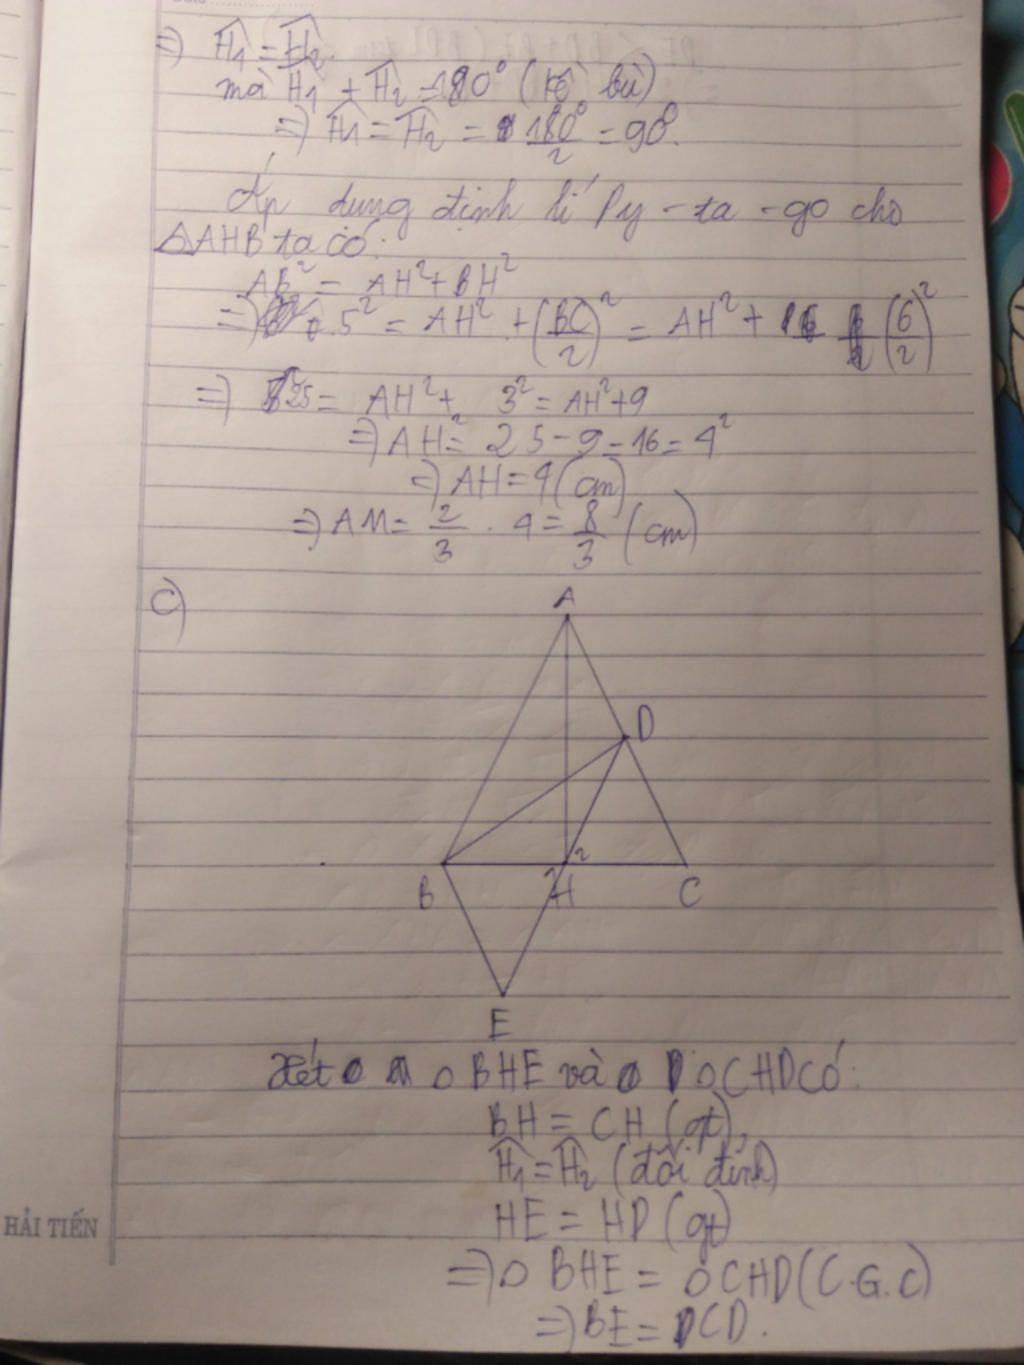 ⇒ Ĥ1 = Ĥ2.
mà Ĥ1 + Ĥ2 = 180° (kề bù)
⇒ Ĥ1 = Ĥ2 = 180°/2 = 90°.
Áp dụng định lí Py-ta-go cho
△AHB ta có:
AB² = AH² + BH²
⇒ 5² = AH² + (BC/2)² = AH² + (6/2)²
⇒ 25 = AH² + 3² = AH² + 9
⇒ AH² = 25 - 9 = 16 = 4²
⇒ AH = 4 (cm)
⇒ AM = 2/3 . 4 = 8/3 (cm)
c)
A
D
2
B 1 H C
E
Xét △ BHE và △ CHD có:
BH = CH (gt),
Ĥ1 = Ĥ2 (đối đỉnh)
HE = HD (gt)
HẢI TIẾN
⇒ △ BHE = △ CHD (C.G.C)
⇒ BE = CD.